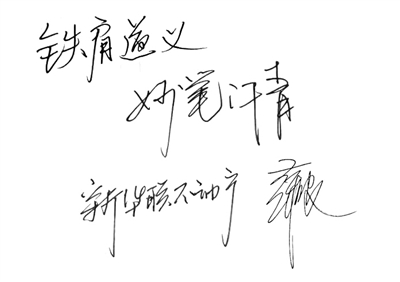 铁肩道义
妙笔汗青
新华联不动产